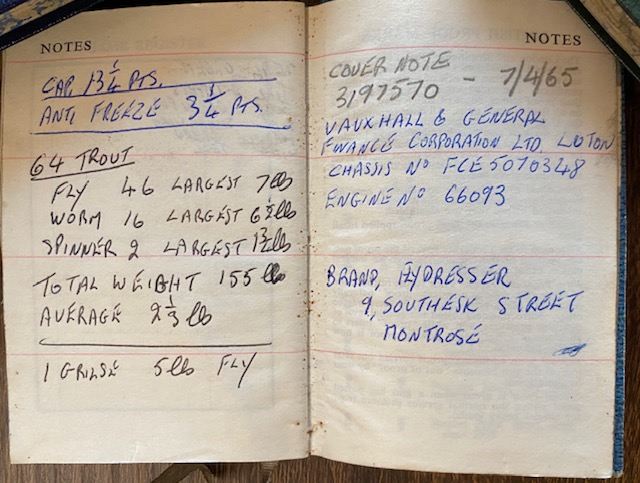 NOTES
CAP. 13 1/4 PTS.
ANTI FREEZE 3 1/4 PTS.
64 TROUT
FLY 46 LARGEST 7lb
WORM 16 LARGEST 6 1/2lb
SPINNER 2 LARGEST 1 3/4lb
TOTAL WEIGHT 155 lb
AVERAGE 2 1/3 lb
1 GRILSE 5lb FLY
NOTES
COVER NOTE
3197570 - 7/4/65
VAUXHALL & GENERAL
FINANCE CORPORATION LTD. LUTON
CHASSIS No FCE 5070348
ENGINE No 66093
BRAND, FLYDRESSER
9, SOUTHESK STREET
MONTROSE